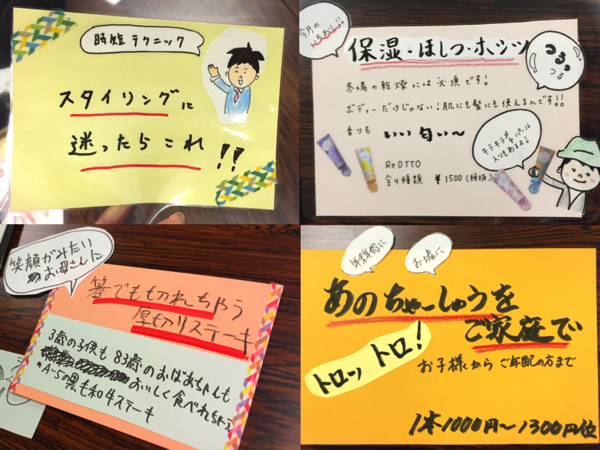 時短テクニック
スタイリングに
迷ったらコレ!!
今月の
保湿・ほしつ・ホシツ
冬場の乾燥には必須です!
ボディーだけじゃない!肌にも髪にも使えるんです!!
香りも いい匂い〜
キラキラ
パール
入りもあるよ!
ReOTTO
全4種類 ¥1500(税抜)
笑顔がみたい
お母さんに
箸でも切れちゃう
厚切りステーキ
3歳の子供も83歳のおばあちゃんも
おいしく食べれちゃう
A-5の黒毛和牛ステーキ
年末年始に
お歳に
あのちゃーしゅうを
ご家庭で
トロットロ!
お子様からご年配の方まで
1本1000円〜1300円位